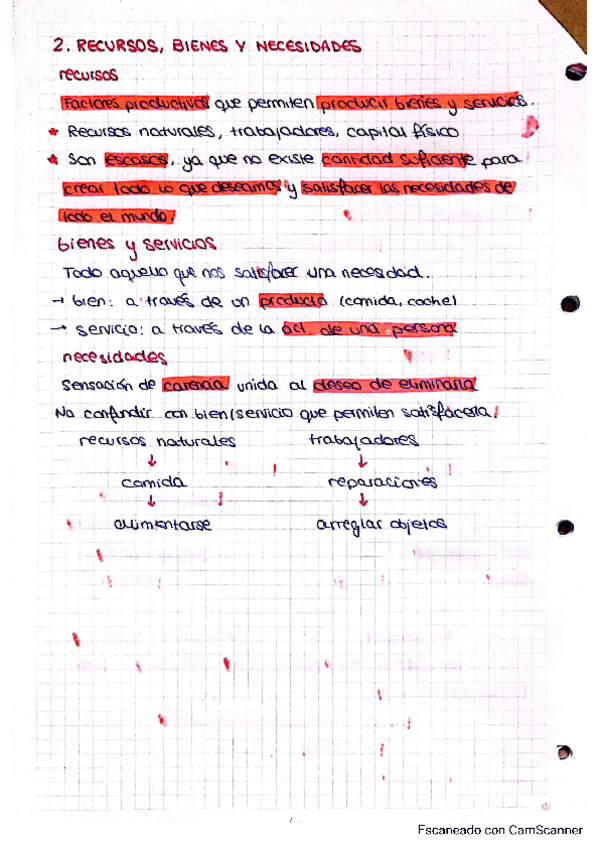 2. RECURSOS, BIENES Y NECESIDADES
recursos
Factores productivos que permiten producir bienes y servicios.
* Recursos naturales, trabajadores, capital físico
* Son escasos, ya que no existe cantidad suficiente para
crear todo lo que deseamos y satisfacer las necesidades de
todo el mundo.
bienes y servicios
Todo aquello que nos satisfacer una necesidad.
→ bien: a través de un producto (comida, coche)
→ servicio: a través de la act. de una persona
necesidades
Sensación de carencia unida al deseo de eliminarla
No confundir con bien/servicio que permiten satisfacerla!
recursos naturales trabajadores
↓ ↓
comida reparaciones
↓ ↓
alimentarse arreglar objetos
Escaneado con CamScanner